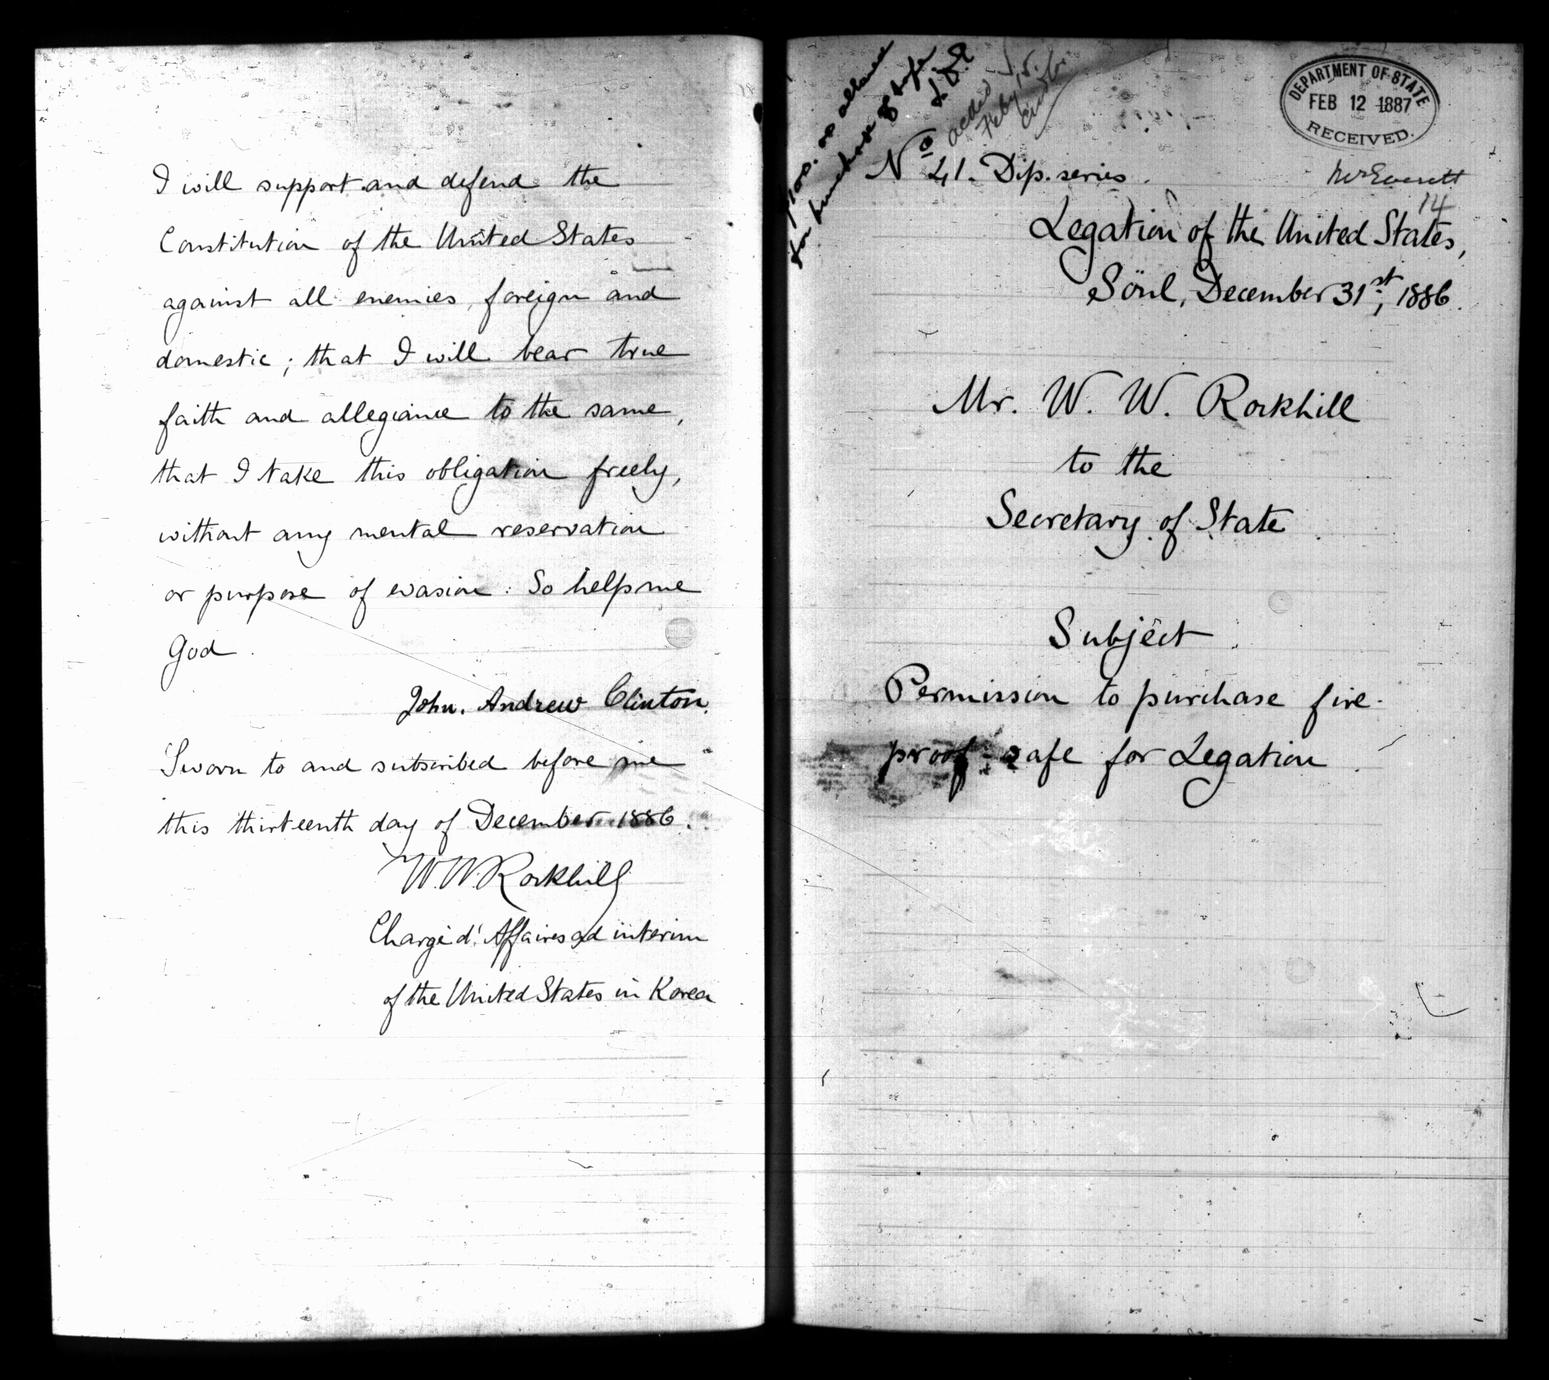 I will support and defend the
Constitution of the United States
against all enemies, foreign and
domestic; that I will bear true
faith and allegiance to the same,
that I take this obligation freely,
without any mental reservation
or purpose of evasion. So help me
God.
John. Andrew Clinton.
Sworn to and subscribed before me
this thirteenth day of December 1886.
W. W. Rockhill
Chargé d'Affaires ad interim
of the United States in Korea
$100. as allowed
for purchase of safe
DEPARTMENT OF STATE
FEB 12 1887
RECEIVED.
No 41. Dip. series.
Mr Everett
14
Legation of the United States,
Söul, December 31st, 1886.
Mr. W. W. Rockhill
to the
Secretary of State
Subject
Permission to purchase fire-
proof safe for Legation.